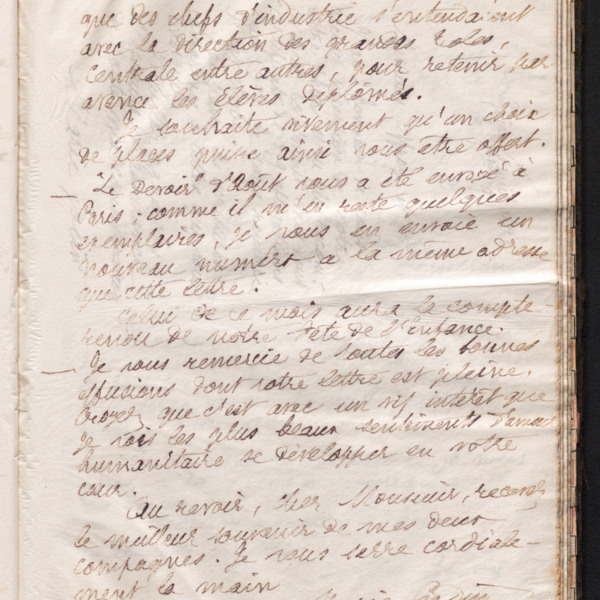 que des chefs d'industrie s'entendaient
avec la direction des grandes Écoles,
Centrale entre autres, pour retenir par
avance les élèves diplômés.
Je souhaite vivement qu'un choix
de places puisse ainsi vous être offert.
"Le Devoir" d'Août vous a été envoyé à
Paris ; comme il m'en reste quelques
exemplaires, je vous en envoie un
nouveau numéro à la même adresse
que cette lettre.
Celui de ce mois aura le compte
rendu de notre Fête de l'Enfance.
Je vous remercie de toutes les bonnes
effusions dont votre lettre est pleine.
Croyez que c'est avec un vif intérêt que
je vois les plus beaux sentiments d'amour
humanitaire se développer en votre
cœur.
Au revoir, cher Monsieur, recevez
le meilleur souvenir de mes deux
compagnes. Je vous serre cordiale-
ment la main
Marie Godin